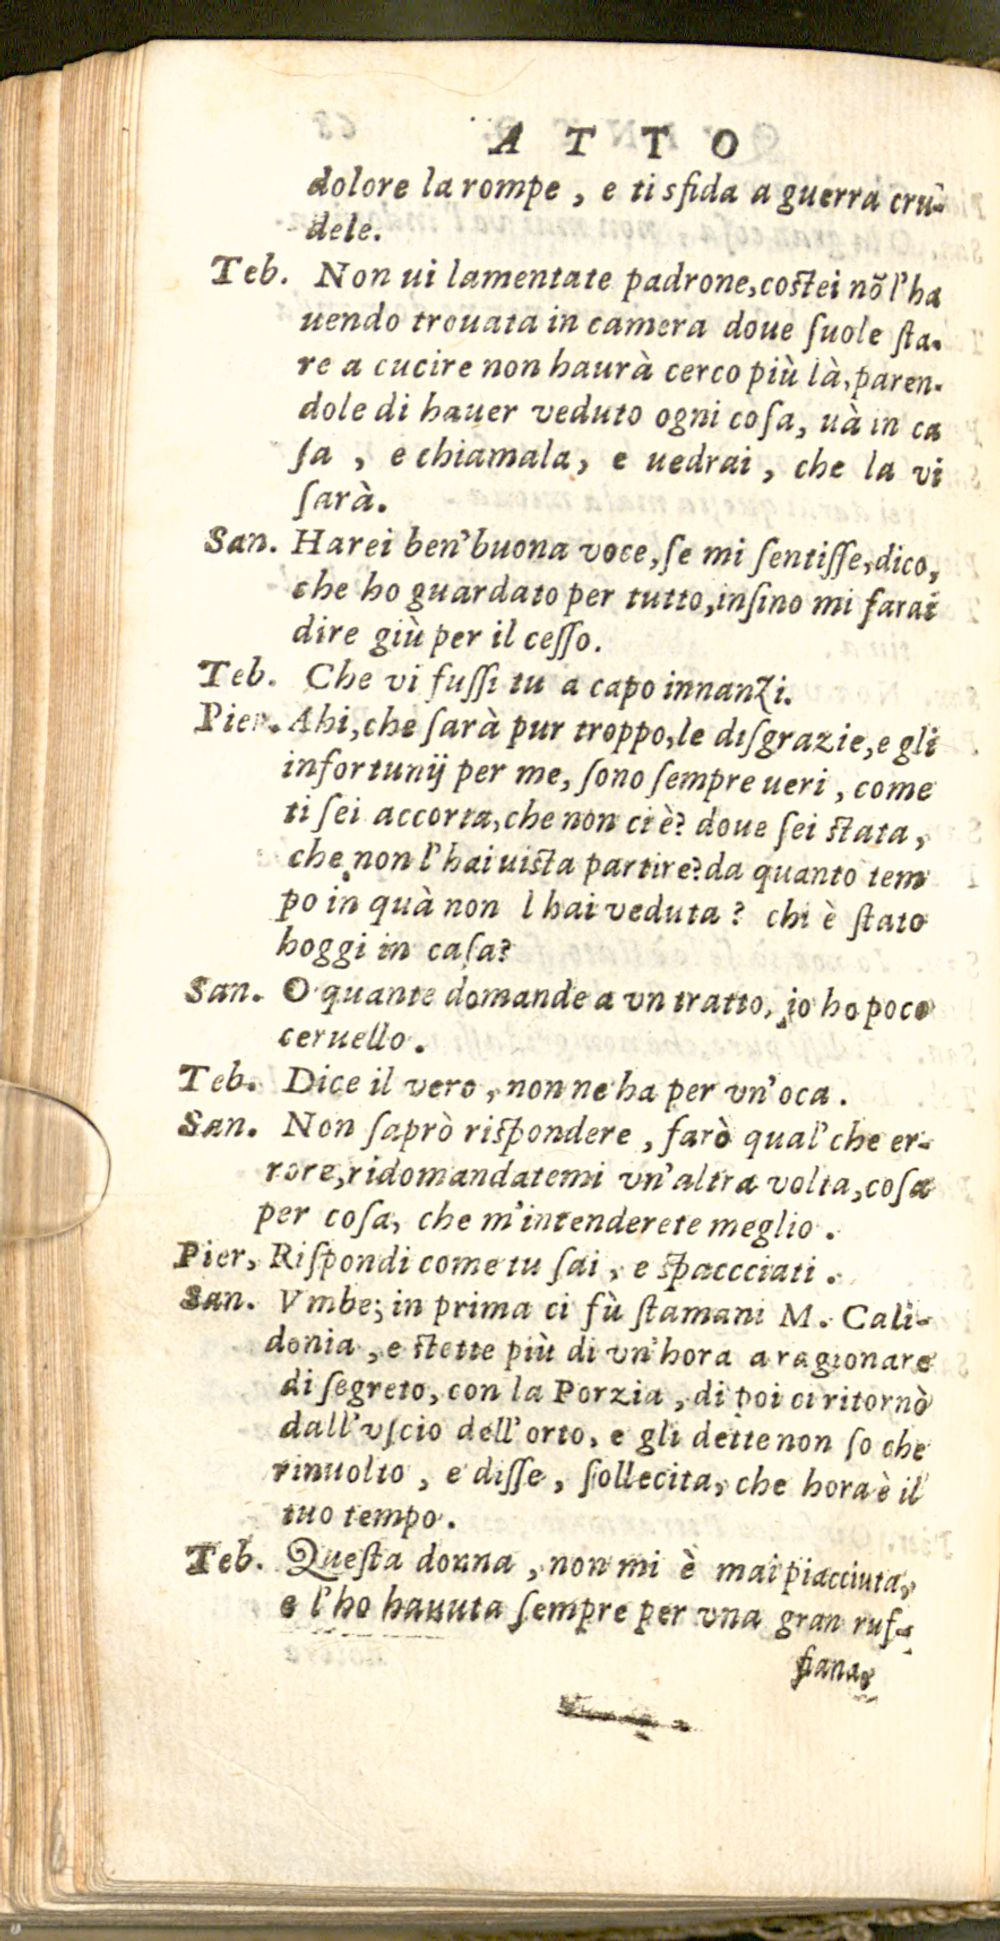 ATTO
dolore la rompe, e ti sfida a guerra cru-
dele.
Teb. Non ui lamentate padrone, costei nõ l'ha
uendo trouata in camera doue ſuole ſta-
re a cucire non haurà cerco più là, paren-
dole di hauer veduto ogni coſa, uà in ca
ſa, e chiamala, e uedrai, che la vi
ſarà.
San. Harei ben' buona voce, ſe mi ſentiſſe, dico,
che ho guardato per tutto, inſino mi farai
dire giù per il ceſſo.
Teb. Che vi fuſſi tu a capo innanzi.
Pier. Ahi, che ſarà pur troppo, le diſgrazie, e gli
infortunij per me, ſono ſempre ueri, come
ti ſei accorta, che non ci è? doue ſei ſtata,
che non l'hai uiſta partire? da quanto tem
po in quà non l hai veduta? chi è ſtato
hoggi in caſa?
San. O quante domande a vn tratto, io ho poco
ceruello.
Teb. Dice il vero, non ne ha per vn'oca.
San. Non ſaprò riſpondere, farò qual'che er-
rore, ridomandatemi vn'altra volta, coſa
per coſa, che m'intenderete meglio.
Pier, Riſpondi come tu ſai, e ſpaccciati.
San. Vmbe; in prima ci fù ſtamani M. Cali-
donia, e ſtette più di vn'hora a ragionare
di ſegreto, con la Porzia, di poi ci ritornò
dall'vſcio dell'orto, e gli dette non ſo che
rinuolto, e diſſe, ſollecita, che hora è il
tuo tempo.
Teb. Queſta donna, non mi è mai piacciuta,
e l'ho hauuta ſempre per vna gran ruf-
fiana,